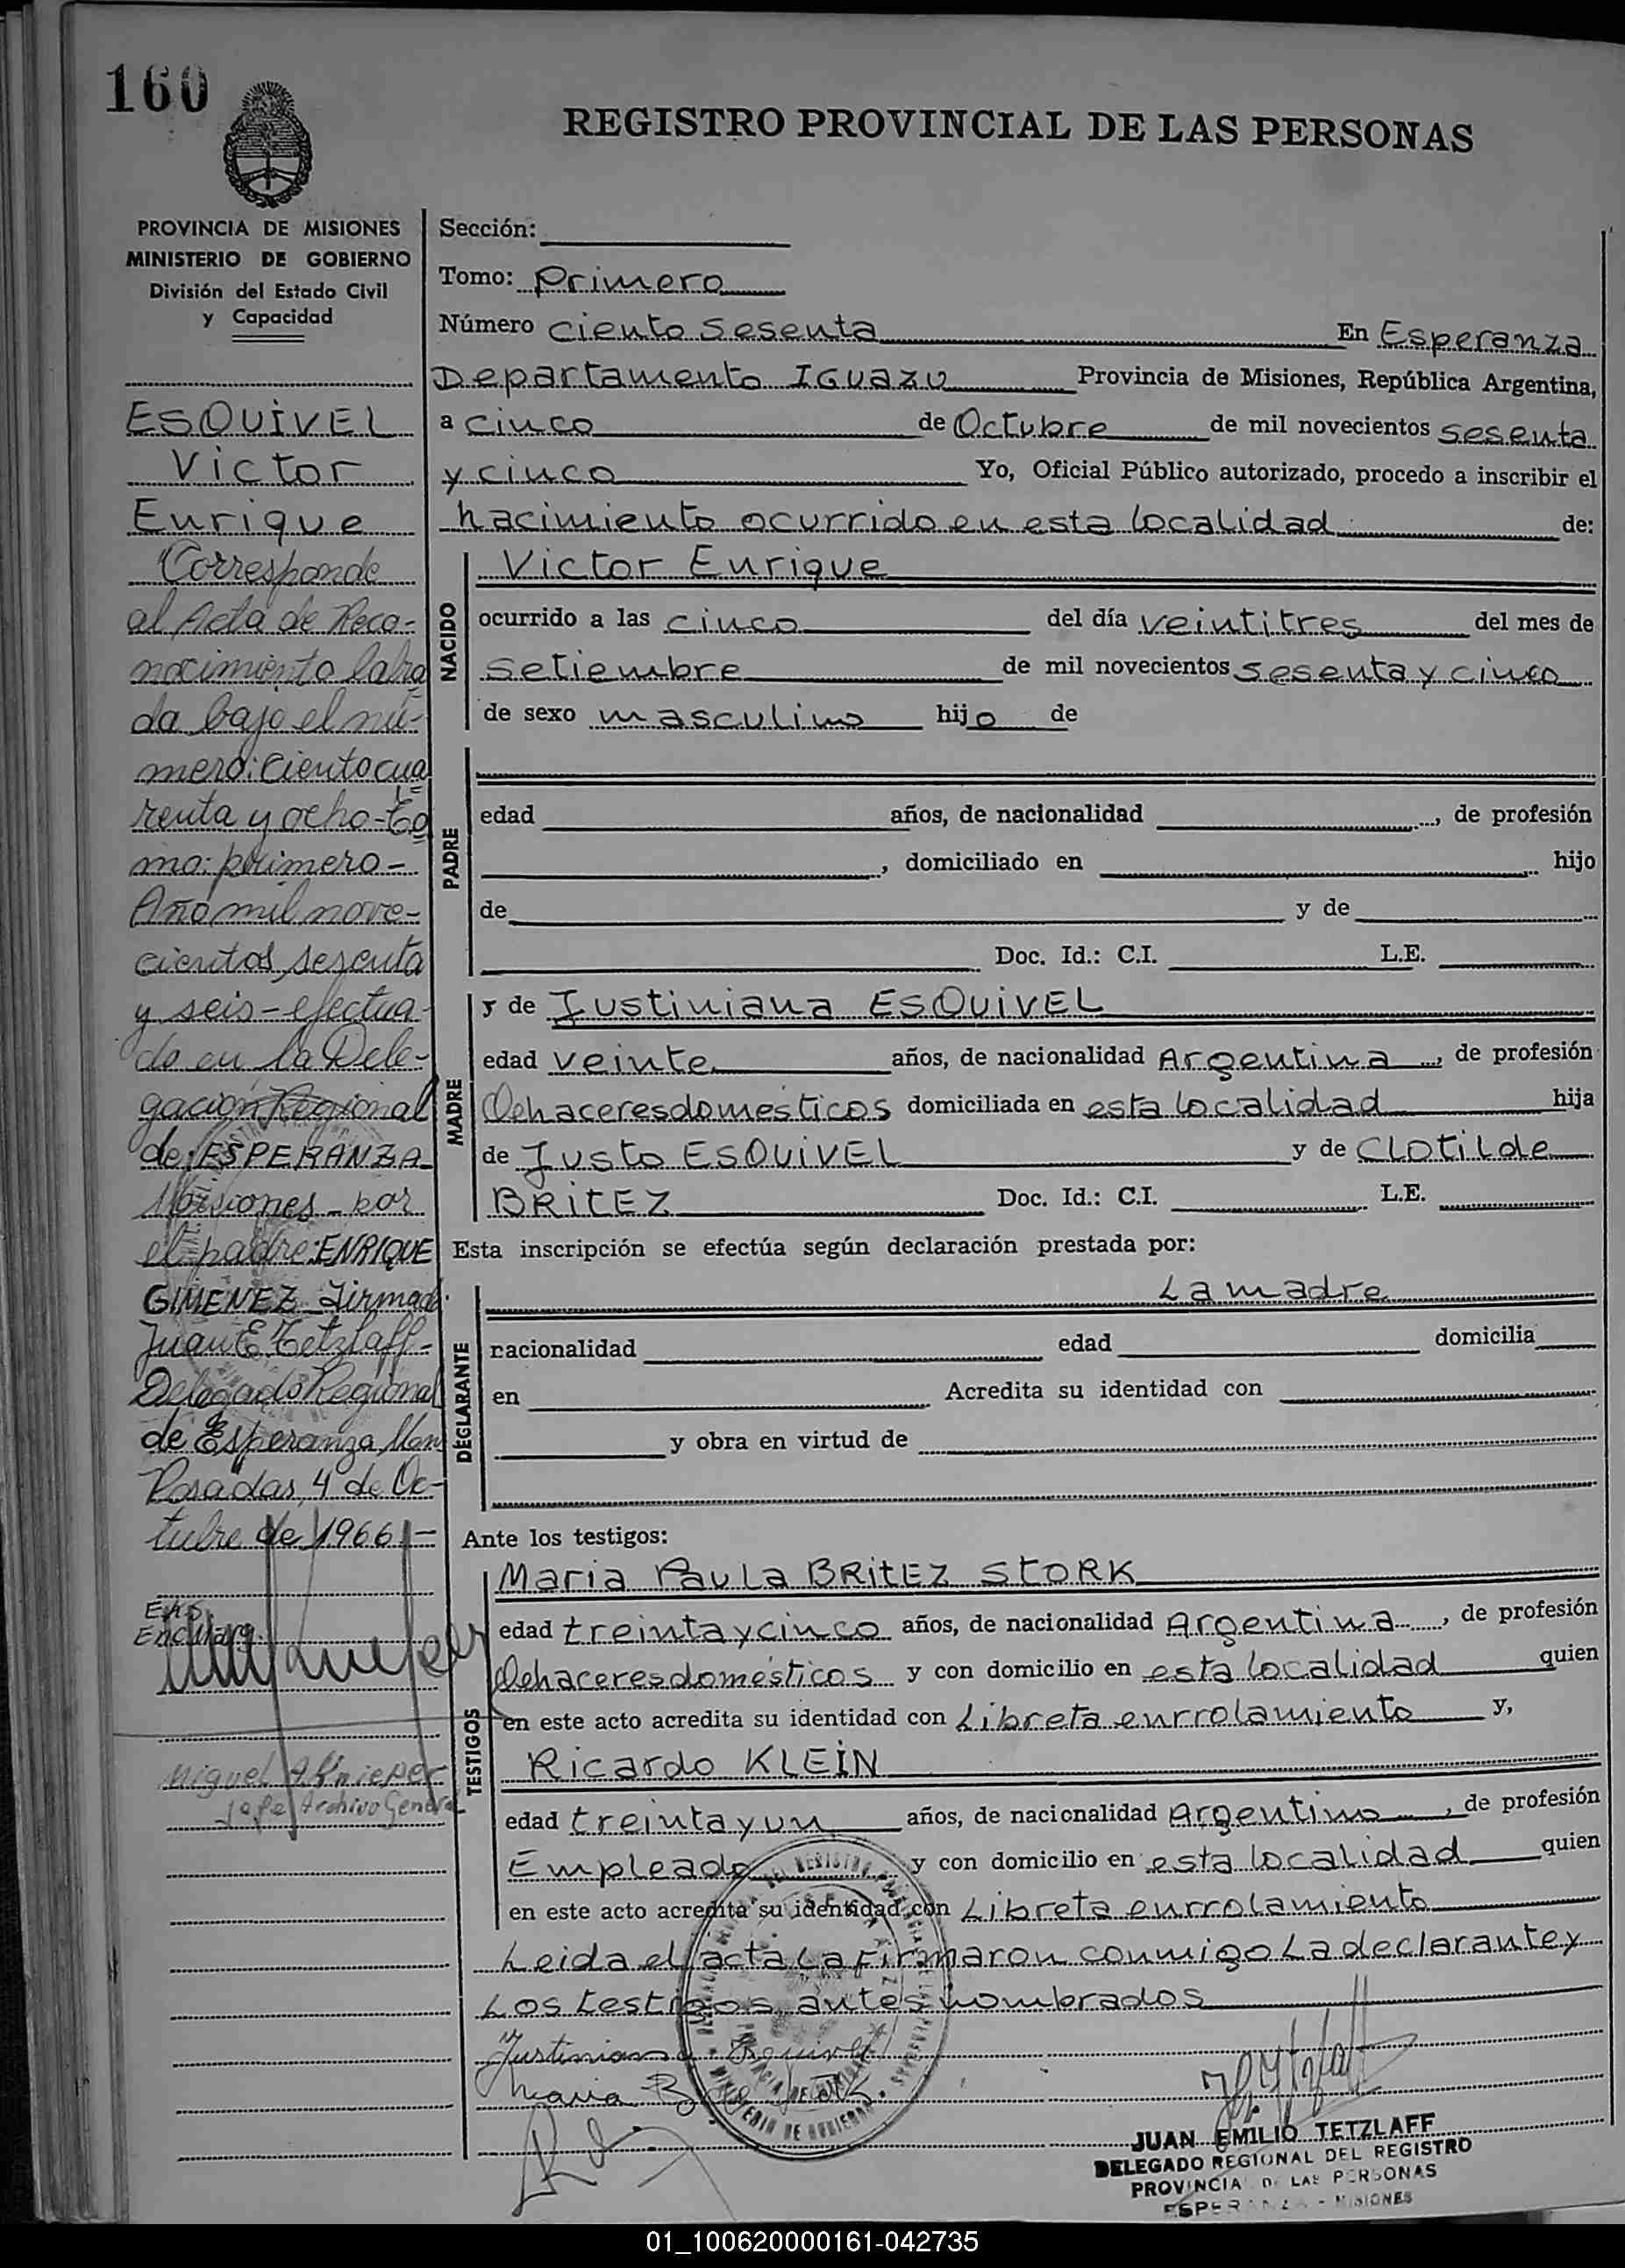 160
REGISTRO PROVINCIAL DE LAS PERSONAS
PROVINCIA DE MISIONES
MINISTERIO DE GOBIERNO
División del Estado Civil
y Capacidad
ESQUIVEL
Victor
Enrique
Corresponde
al Acta de Reco-
nocimiento labra
da bajo el nú-
mero: Ciento cua
renta y ocho - To
mo: primero -
Año mil nove-
cientos sesenta
y seis - efectua
do en la Dele-
gación Regional
de: ESPERANZA
Misiones - por
el padre: ENRIQUE
GIMENEZ Firmado:
Juan E. Tetzlaff -
Delegado Regional
de Esperanza Mnes
Posadas, 4 de Oc-
tubre de 1966 -
Miguel A Knieper
Jefe Archivo General
Sección:
Tomo: Primero
Número ciento sesenta En Esperanza
Departamento IGUAZU Provincia de Misiones, República Argentina,
a cinco de Octubre de mil novecientos sesenta
y cinco Yo, Oficial Público autorizado, procedo a inscribir el
nacimiento ocurrido en esta localidad de:
NACIDO
Victor Enrique
ocurrido a las cinco del día veintitres del mes de
setiembre de mil novecientos sesenta y cinco
de sexo masculino hijo de
PADRE
edad años, de nacionalidad , de profesión
, domiciliado en hijo
de y de
Doc. Id.: C.I. L.E.
MADRE
y de Justiniana ESQUIVEL
edad veinte años, de nacionalidad Argentina , de profesión
Qehaceres domésticos domiciliada en esta localidad hija
de Justo ESQUIVEL y de Clotilde
BRITEZ Doc. Id.: C.I. L.E.
Esta inscripción se efectúa según declaración prestada por:
DECLARANTE
La madre
nacionalidad edad domicilia
en Acredita su identidad con
y obra en virtud de
Ante los testigos:
TESTIGOS
Maria Paula BRITEZ STORK
edad treinta y cinco años, de nacionalidad Argentina , de profesión
Qehaceres domésticos y con domicilio en esta localidad quien
en este acto acredita su identidad con Libreta enrrolamiento y,
Ricardo KLEIN
edad treinta y un años, de nacionalidad Argentino , de profesión
Empleado y con domicilio en esta localidad quien
en este acto acredita su identidad con Libreta enrrolamiento
Leida el acta la firmaron conmigo La declarante y
Los testigos antes nombrados
Justiniana Esquivel
Maria B
JUAN EMILIO TETZLAFF
DELEGADO REGIONAL DEL REGISTRO
PROVINCIAL DE LAS PERSONAS
ESPERANZA - MISIONES
01_100620000161-042735